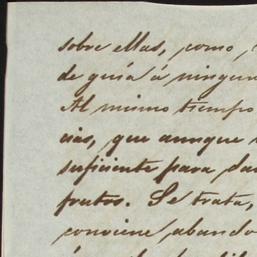 sobre ellas, como
de guía á ningun
Al mismo tiempo
cias, que aunque
suficiente para da
frutos. Se trata,
conviene, abando